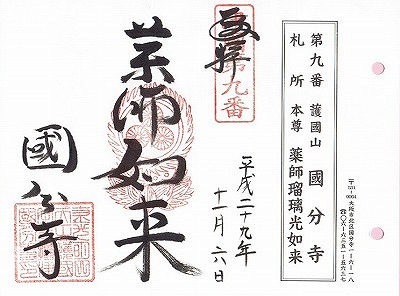 第九番 護國山 國分寺
札所 本尊 薬師瑠璃光如来
〒531-0064 大阪市北区国分寺一-六-一八
☎〇六-六三五一-五六三七
奉拝
第九番
平成二十九年
十一月六日
薬師如来
國分寺